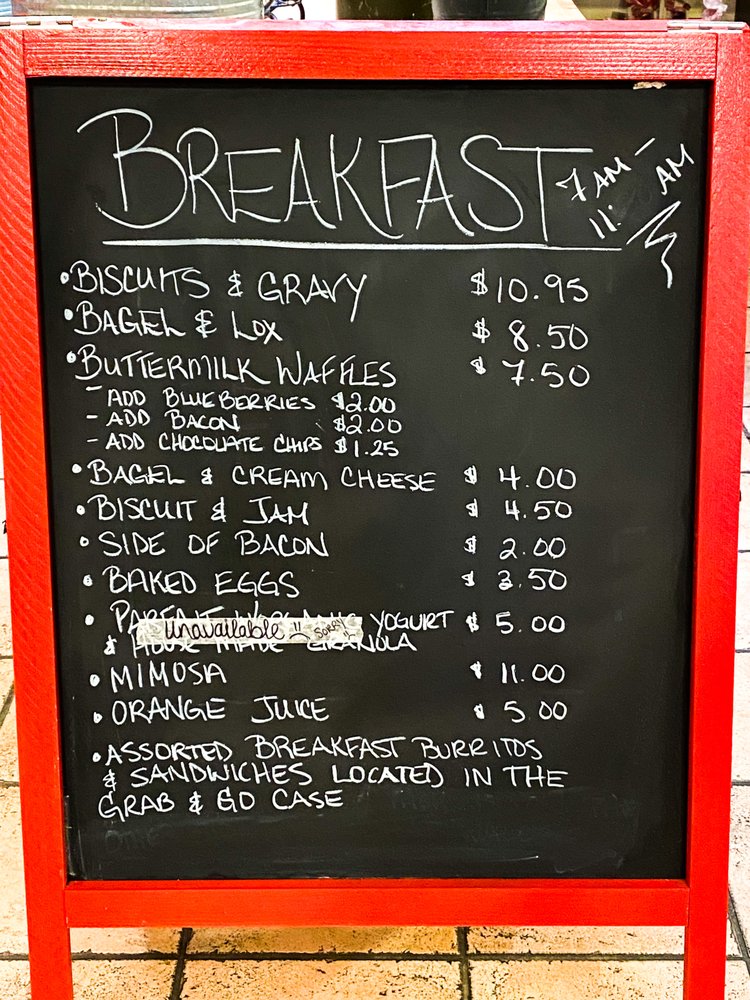 BREAKFAST 7AM - 11: AM
• BISCUITS & GRAVY $10.95
• BAGEL & LOX $8.50
• BUTTERMILK WAFFLES $7.50
- ADD BLUEBERRIES $2.00
- ADD BACON $2.00
- ADD CHOCOLATE CHIPS $1.25
• BAGEL & CREAM CHEESE $4.00
• BISCUIT & JAM $4.50
• SIDE OF BACON $2.00
• BAKED EGGS $3.50
• PARFAIT YOGURT $5.00
Unavailable !! SORRY
& HOUSE MADE GRANOLA
• MIMOSA $11.00
• ORANGE JUICE $5 00
• ASSORTED BREAKFAST BURRITOS
& SANDWICHES LOCATED IN THE
GRAB & GO CASE